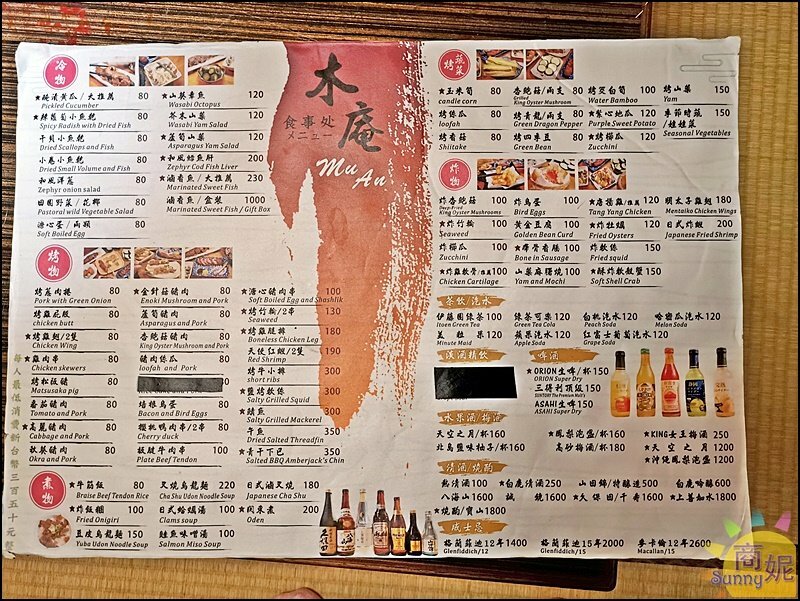 木庵
食事处
メニュー
Mu An
冷物
★醃漬黃瓜/大推薦 80
Pickled Cucumber
★辣蘿蔔小魚乾 80
Spicy Radish with Dried Fish
干貝小魚乾 80
Dried Scallops and Fish
小卷小魚乾 80
Dried Small Volume and Fish
和風洋蔥 80
Zephyr onion salad
田園野菜/花椰 80
Pastoral wild Vegetable Salad
溏心蛋/兩顆 80
Soft Boiled Egg
★山葵章魚 120
Wasabi Octopus
芥末山藥 120
Wasabi Yam Salad
蘆筍山藥 120
Asparagus Yam Salad
★和風鱈魚肝 200
Zephyr Cod Fish Liver
★滷香魚/大推薦 230
Marinated Sweet Fish
滷香魚/盒裝 1000
Marinated Sweet Fish / Gift Box
烤物
烤蔥肉捲 80
Pork with Green Onion
烤雞屁股 80
chicken butt
★烤雞翅/2隻 80
Chicken Wing
★雞肉串 80
Chicken skewers
★烤松板豬 80
Matsusaka pig
番茄豬肉 80
Tomato and Pork
★高麗豬肉 80
Cabbage and Pork
秋葵豬肉 80
Okra and Pork
★金針菇豬肉 80
Enoki Mushroom and Pork
蘆筍豬肉 80
Asparagus and Pork
杏鮑菇豬肉 80
King Oyster Mushroom and Pork
豬肉絲瓜 80
loofah and Pork
培根鳥蛋 80
Bacon and Bird Eggs
櫻桃鴨肉串/2串 80
Cherry duck
板腱牛肉串 100
Plate Beef Tendon
★溏心豬肉串 100
Soft Boiled Egg and Shashlik
★烤竹輪/2串 130
Seaweed
★烤雞腿排 180
Boneless Chicken Leg
天使紅蝦/2隻 190
Red Shrimp
★烤牛小排 300
short ribs
★鹽烤軟絲 200
Salty Grilled Squid
★鯖魚 200
Salty Grilled Mackerel
午魚 250
Dried Salted Threadfin
★青干下巴 350
Salted BBQ Amberjack's Chin
煮物
★牛筋飯 80
Braise Beef Tendon Rice
★炸飯糰 100
Fried Onigiri
豆皮烏龍麵 150
Yuba Udon Noodle Soup
叉燒烏龍麵 220
Cha Shu Udon Noodle Soup
日式蛤蠣湯 100
Clams soup
鮭魚味噌湯 100
Salmon Miso Soup
日式滷叉燒 180
Japanese Cha Shu
★關東煮 200
Oden
每人最低消費新台幣三百五十元整
烤蔬菜
★玉米筍 80
candle corn
烤絲瓜 80
loofah
烤香菇 80
Shiitake
杏鮑菇/兩支 80
Grilled King Oyster Mushroom
烤青龍/兩支 80
Green Dragon Pepper
烤四季豆 80
Green Bean
烤茭白筍 100
Water Bamboo
★紫心地瓜 120
Purple Sweet Potato
★烤櫛瓜 120
Zucchini
烤山藥 150
Yam
季節時蔬/娃娃菜 150
Seasonal Vegetables
炸物
炸杏鮑菇 80
Deep-Fried King Oyster Mushrooms
★炸竹輪 80
Seaweed
炸櫛瓜 80
Zucchini
★炸雞軟骨 100
Chicken Cartilage
炸鳥蛋 100
Bird Eggs
★黃金豆腐 100
Golden Bean Curd
★爆骨香腸 100
Bone in Sausage
山藥麻糬燒 100
Yam and Mochi
★唐揚雞 120
Tang Yang Chicken
★炸牡蠣 180
Fried Oysters
炸軟絲 150
Fried squid
★酥炸軟殼蟹 150
Soft Shell Crab
明太子雞翅 180
Mentaiko Chicken Wings
日式炸蝦 200
Japanese Fried Shrimp
茶飲/汽水
伊藤園綠茶 100
Itoen Green Tea
美粒果 100
Minute Maid
綠茶可樂 120
Green Tea Cola
蘋果汽水 120
Apple Soda
白桃汽水 120
Peach Soda
紅富士葡萄汽水 120
Grape Soda
哈蜜瓜汽水 120
Melon Soda
漢酒精飲
啤酒
★ORION生啤/杯 150
ORION Super Dry
三得利頂級 150
SUNTORY The Premium Malt's
ASAHI生啤 150
ASAHI Super Dry
水果酒/梅酒
天空之月/杯 160
北島鹽味柚子/杯 160
★鳳梨泡盛/杯 160
高砂梅酒/杯 180
★KING女王梅酒 250
★天空之月 1200
★沖繩鳳梨泡盛 1200
清酒/燒酌
熱清酒 100
八海山 1600
★燒酌/寶山 1800
★白鹿清酒 250
誠鏡 1600
山田錦/特釀造 500
★久保田/千壽 1600
白鹿吟釀 600
★上善如水 1800
威士忌
格蘭菲迪12年 1400
Glenfiddich/12
格蘭菲迪15年 2000
Glenfiddich/15
麥卡倫12年 2600
Macallan/15
商妮
Sunny